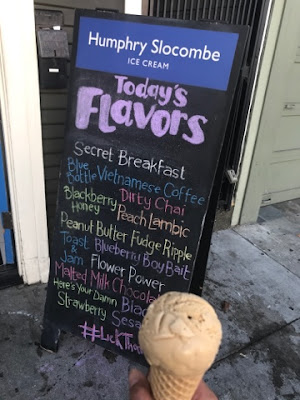 Humphry Slocombe
ICE CREAM
Today's
Flavors
Secret Breakfast
Blue Bottle Vietnamese Coffee
Blackberry Honey Dirty Chai
Peach Lambic
Peanut Butter Fudge Ripple
Toast & Jam Blueberry Boy Bait
Flower Power
Malted Milk Chocolate
Here's Your Damn
Strawberry